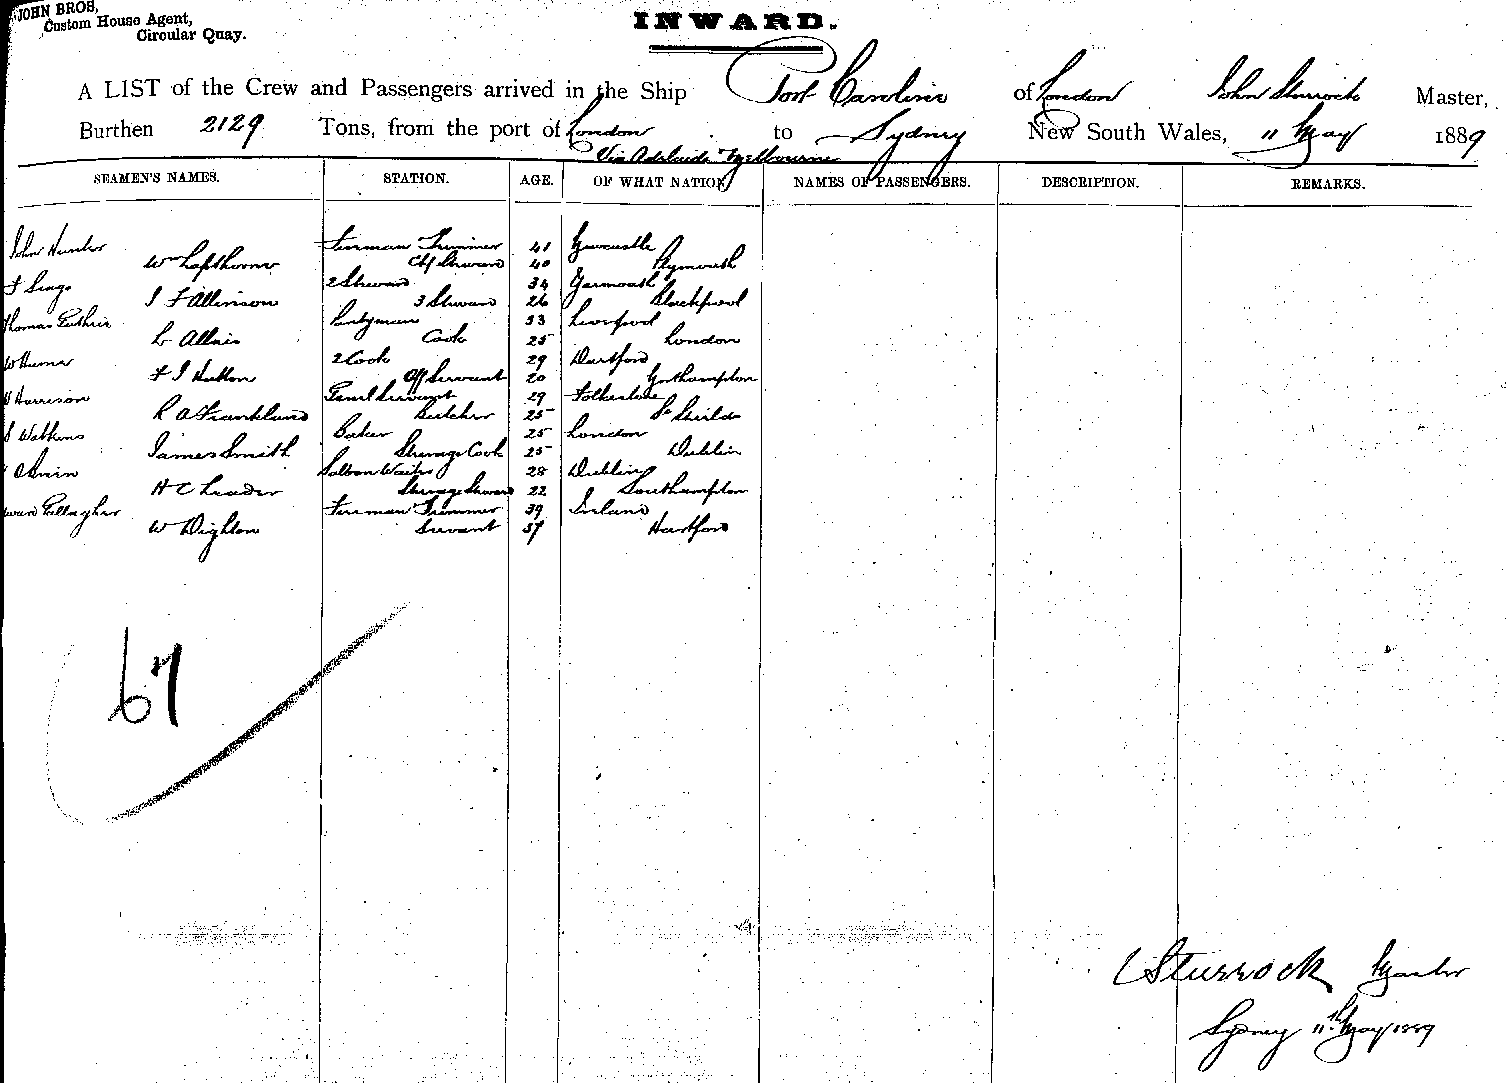 JOHN BROS,
Custom House Agent,
Circular Quay.
INWARD.
A LIST of the Crew and Passengers arrived in the Ship Port Caroline of London John Sturrock Master,
Burthen 2129 Tons, from the port of London to Sydney New South Wales, 11 May 1889
Via Adelaide Melbourne
SEAMEN'S NAMES. STATION. AGE. OF WHAT NATION NAMES OF PASSENGERS. DESCRIPTION. REMARKS.
John Hunter Fireman Trimmer 41 Newcastle
Wm Lapthorne Chf Steward 40 Plymouth
2 Steward 34 Yarmouth
J F Allinson 3 Steward 26 Blackpool
Thomas Guthrie Pantryman 33 Liverpool
L Allais Cook 25 London
2 Cook 29 Dartford
F J Hutton Off Servant 20 Northampton
Harrison Genl Servant 29 Folkestone
R A Frankland Butcher 25 St Hilda
S Watkins Baker 25 London
James Smith Steerage Cook 25 Dublin
Saloon Waiter 28 Dublin
H C Leader Steerage Steward 22 Southampton
Gallagher Fireman Trimmer 39 Ireland
W Dighton Servant 37 Hartford
67
Sturrock Master
Sydney 11th May 1889